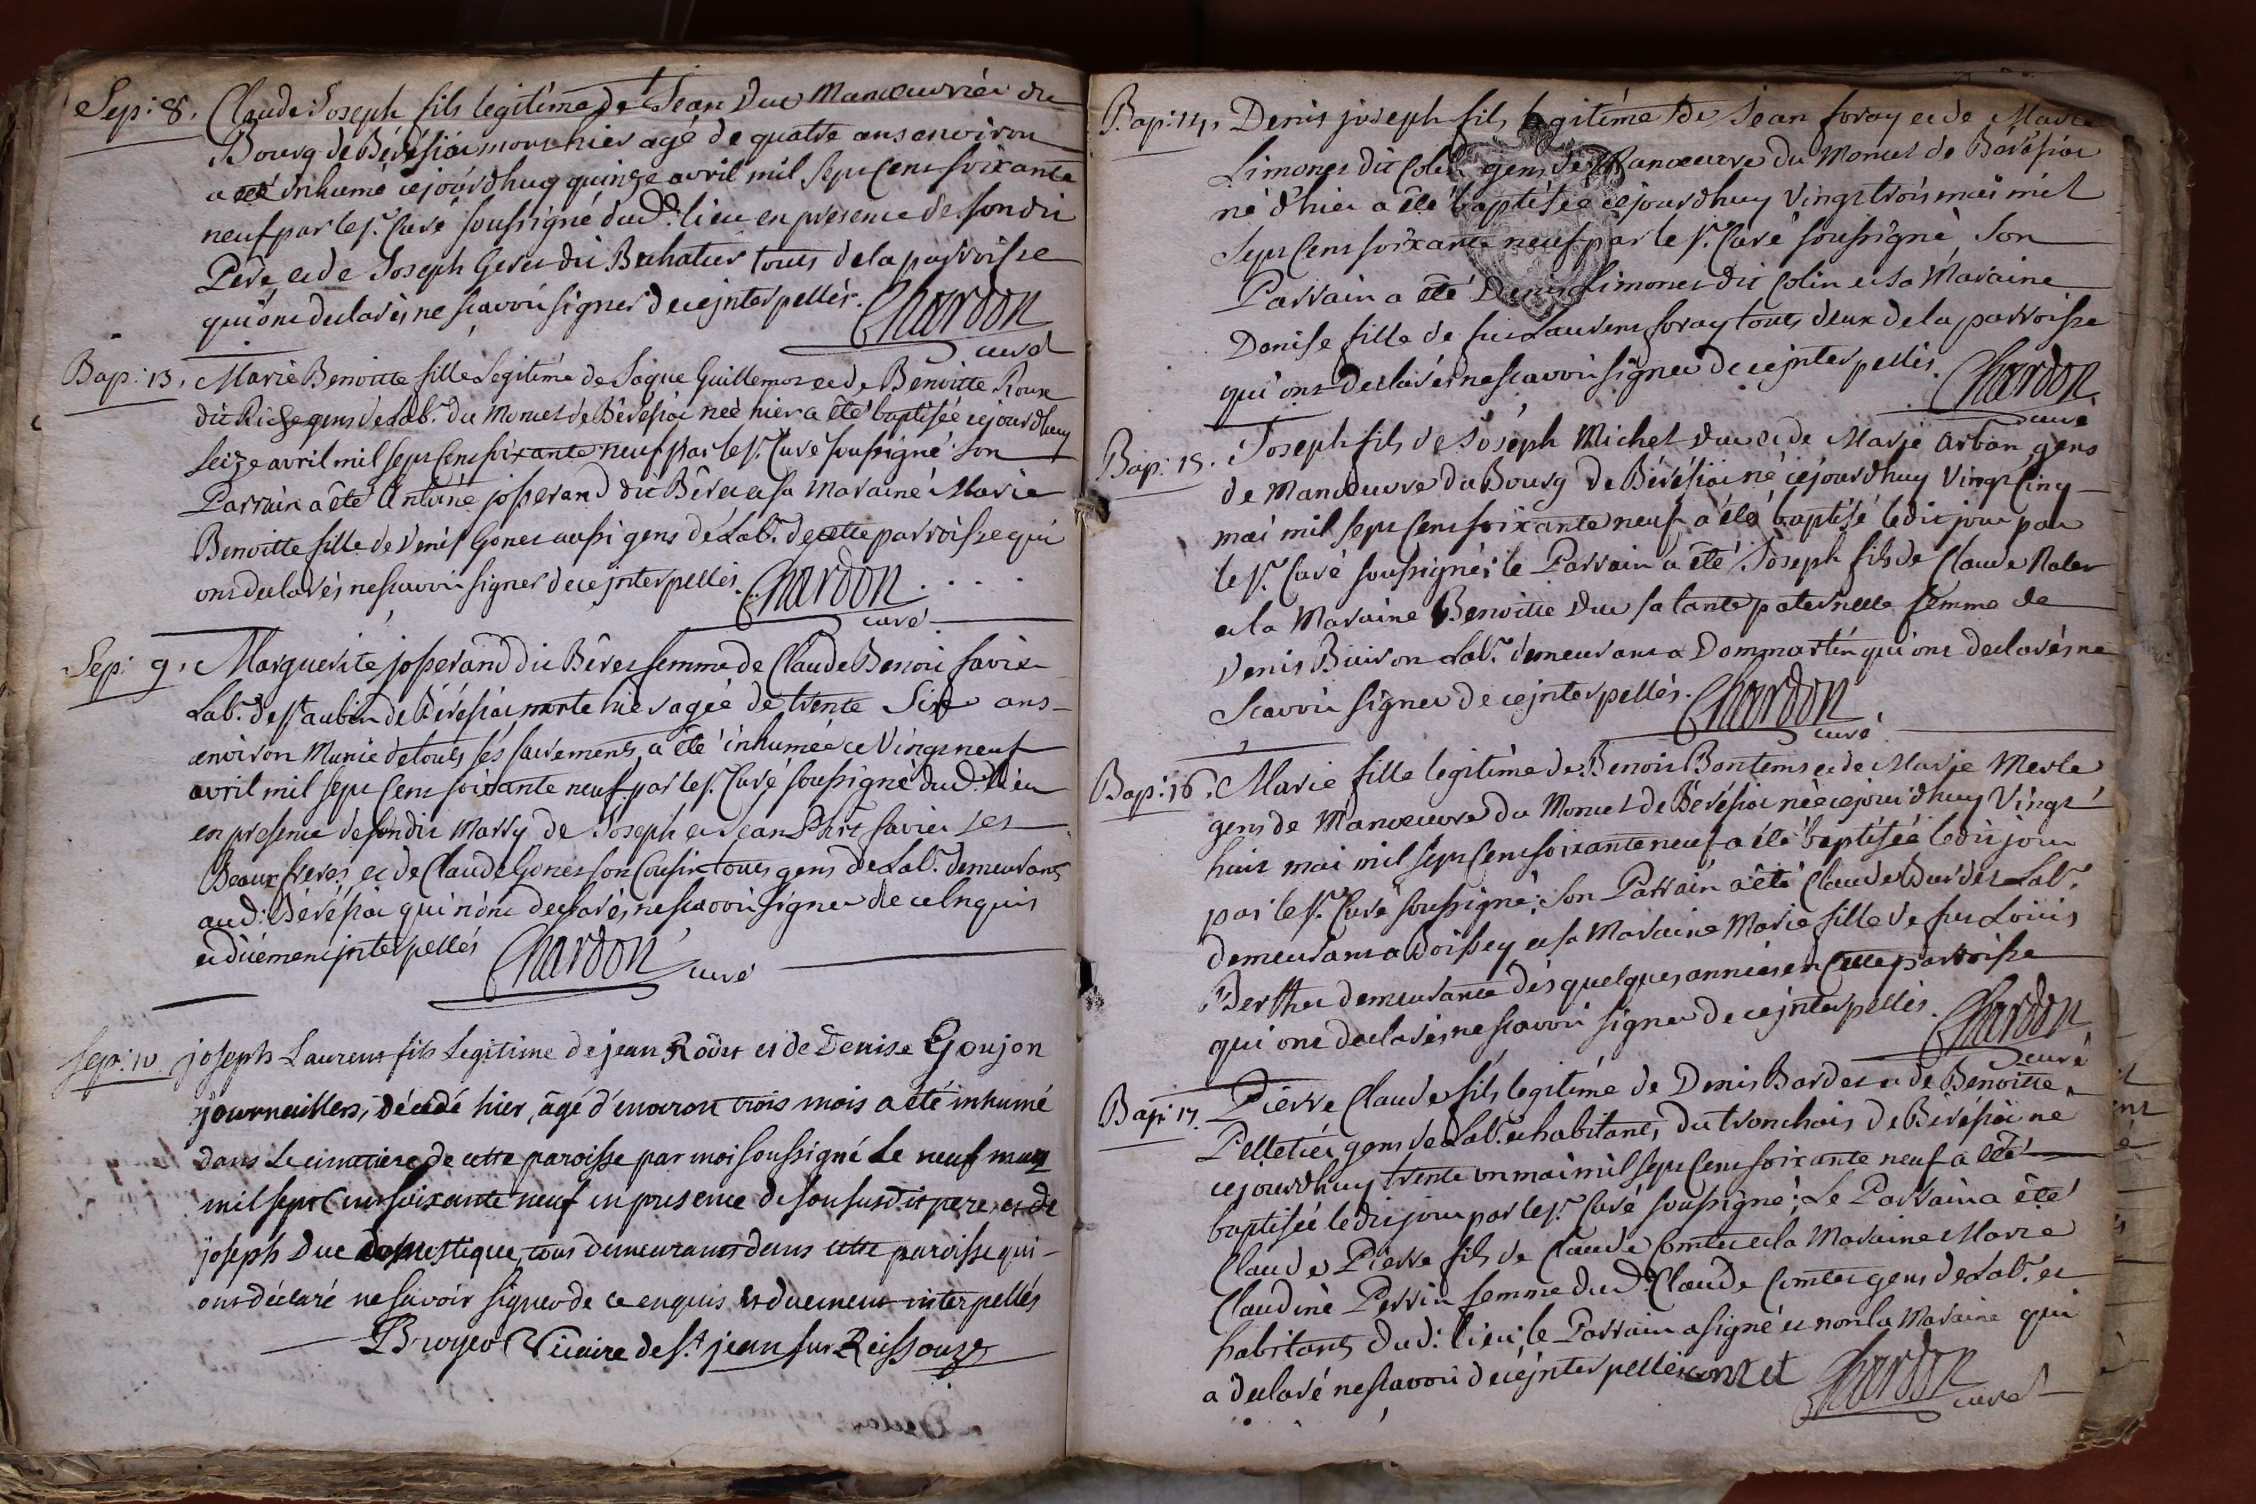 Sep: 8. Claude Joseph fils legitime de Jean Duc Manœuvrier du
Bourg de Béréſiat mort hier agé de quatre ans environ
a été inhumé cejourdhuy quinze avril mil sept Cent soixante
neuf par le sr. Curé soussigné dud. lieu en presence de son dit
Pere et de Joseph Geret dit Buchatier touts de la parroisse
qui ont declarés ne scavoir signer de ce jnterpellés. Chardon
curé
Bap: 13. Marie Benoitte fille Legitime de Jaque Guillemot et de Benoitte Roux
dit Riche gens de Lab.r du Moncet de Béréſiat neé hier a été baptisée cejourdhuy
seize avril mil sept Cent soixante neuf par le sr. Curé soussigné son
Parrain a été Antoine josserand dit Béret et sa Maraine Marie
Benoitte fille de Denis Gonet aussi gens de Lab.r de cette parroisse qui
ont declarés ne scavoir signer de ce jnterpellés. Chardon
curé
Sep: 9. Marguerite josserand dit Béret femme de Claude Benoit favier
Lab.r de st. aubin de Béréſiat morte hier agée de trente Six ans
environ Munie de touts ses sacrements a été inhumée ce Vingt neuf
avril mil sept Cent soixante neuf par le sr. Curé soussigné dud. lieu
en presence de sondit Marry de Joseph et Jean Phirt favier ses
Beaux freres et de Claude Gonet son Cousin tous gens de Lab.r demeurants
aud. Béréſiat qui n'ont declarés ne scavoir signer de ce Enquis
et düement jnterpellés Chardon curé
Sep: 10. joseph Laurent fils Legitime de jean Rôdet et de Denise Goujon
journaillers, décédé hier, âgé d'environ trois mois a été inhumé
dans Le cimetiere de cette paroisse par moi soussigné Le neuf may
mil sept Cent soixante neuf en presence de son susdit pere et de
joseph Duc domestique, tous demeurants dans cette paroisse qui
ont déclaré ne savoir signer de ce enquis et duement interpellés
Broyer Vicaire de st. jean sur Reissouze
Bap: 14. Denis joseph fils legitime de Jean foray et de Marie
Limonet dit Colin gens de Manœuvre du Moncet de Béréſiat
né d'hier a été baptisée cejourdhuy Vingt trois mai mil
sept Cent soixante neuf par le sr. Curé soussigné, son
Parrain a été Denis Limonet dit Colin et sa Maraine
Denise fille de fut Laurent foray touts deux de la parroisse
qui ont declarés ne scavoir signer de ce jnterpellés. Chardon
curé
Bap: 15. Joseph fils de Joseph Michel Duc et de Marie Arban gens
de Manœuvre du Bourg de Béréſiat né cejourdhuy Vingt Cinq
mai mil sept Cent soixante neuf a été baptisé ledit jour par
le sr. Curé soussigné; le Parrain a été Joseph fils de Claude Nalet
et la Maraine Benoitte Duc sa tante paternelle femme de
Denis Buiron Lab.r demeurant a Dommartin qui ont declarés ne
Scavoir signer de ce jnterpellés. Chardon
curé
Bap: 16. Marie fille legitime de Benoit Bontems et de Marie Merle
gens de Manœuvre du Moncet de Béréſiat née cejourdhuy Vingt
huit mai mil sept Cent soixante neuf a été baptisée ledit jour
par le sr. Curé soussigné; Son Parrain a été Claude Burdet Lab.r
demeurant a Boissey et sa Maraine Marie fille de fut Louis
Berthet demeurante dès quelques années en Cette parroisse
qui ont declarés ne scavoir signer de ce jnterpellés. Chardon
curé
Bap: 17. Pierre Claude fils legitime de Denis Bardet et de Benoitte
Pelletier gens de Lab.r et habitants du tronchais de Béréſiat né
cejourdhuy trente un mai mil sept Cent soixante neuf a été
baptisée ledit jour par le sr. Curé soussigné; Le Parrain a été
Claude Pierre fils de Claude Comtet et la Maraine Marie
Claudine Perrin femme dud. Claude Comtet gens de Lab.r et
habitants dud. lieu; le Parrain a signé et non la Maraine qui
a declaré ne scavoir de ce jnterpellée contet Chardon
curé